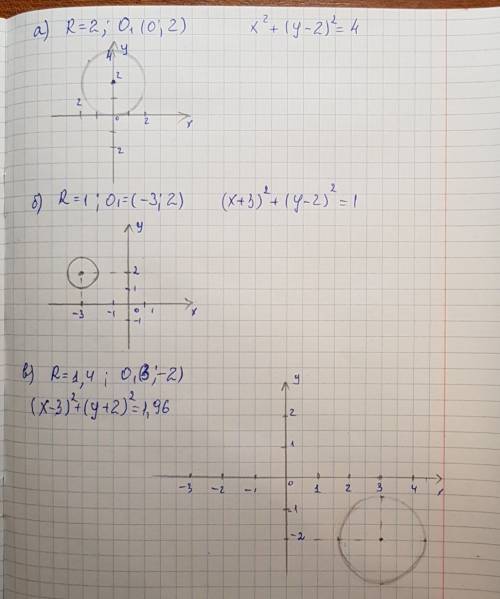 а) R=2; O₁(0; 2) x²+(y-2)²=4
y
4
2
2 0 2 x
2
б) R=1; O₁=(-3; 2) (x+3)²+(y-2)²=1
y
2
1
-3 -1 0 1 x
-1
в) R=1,4; O₁(3; -2)
(x-3)²+(y+2)²=1,96
y
2
1
-3 -2 -1 0 1 2 3 4 x
-1
-2